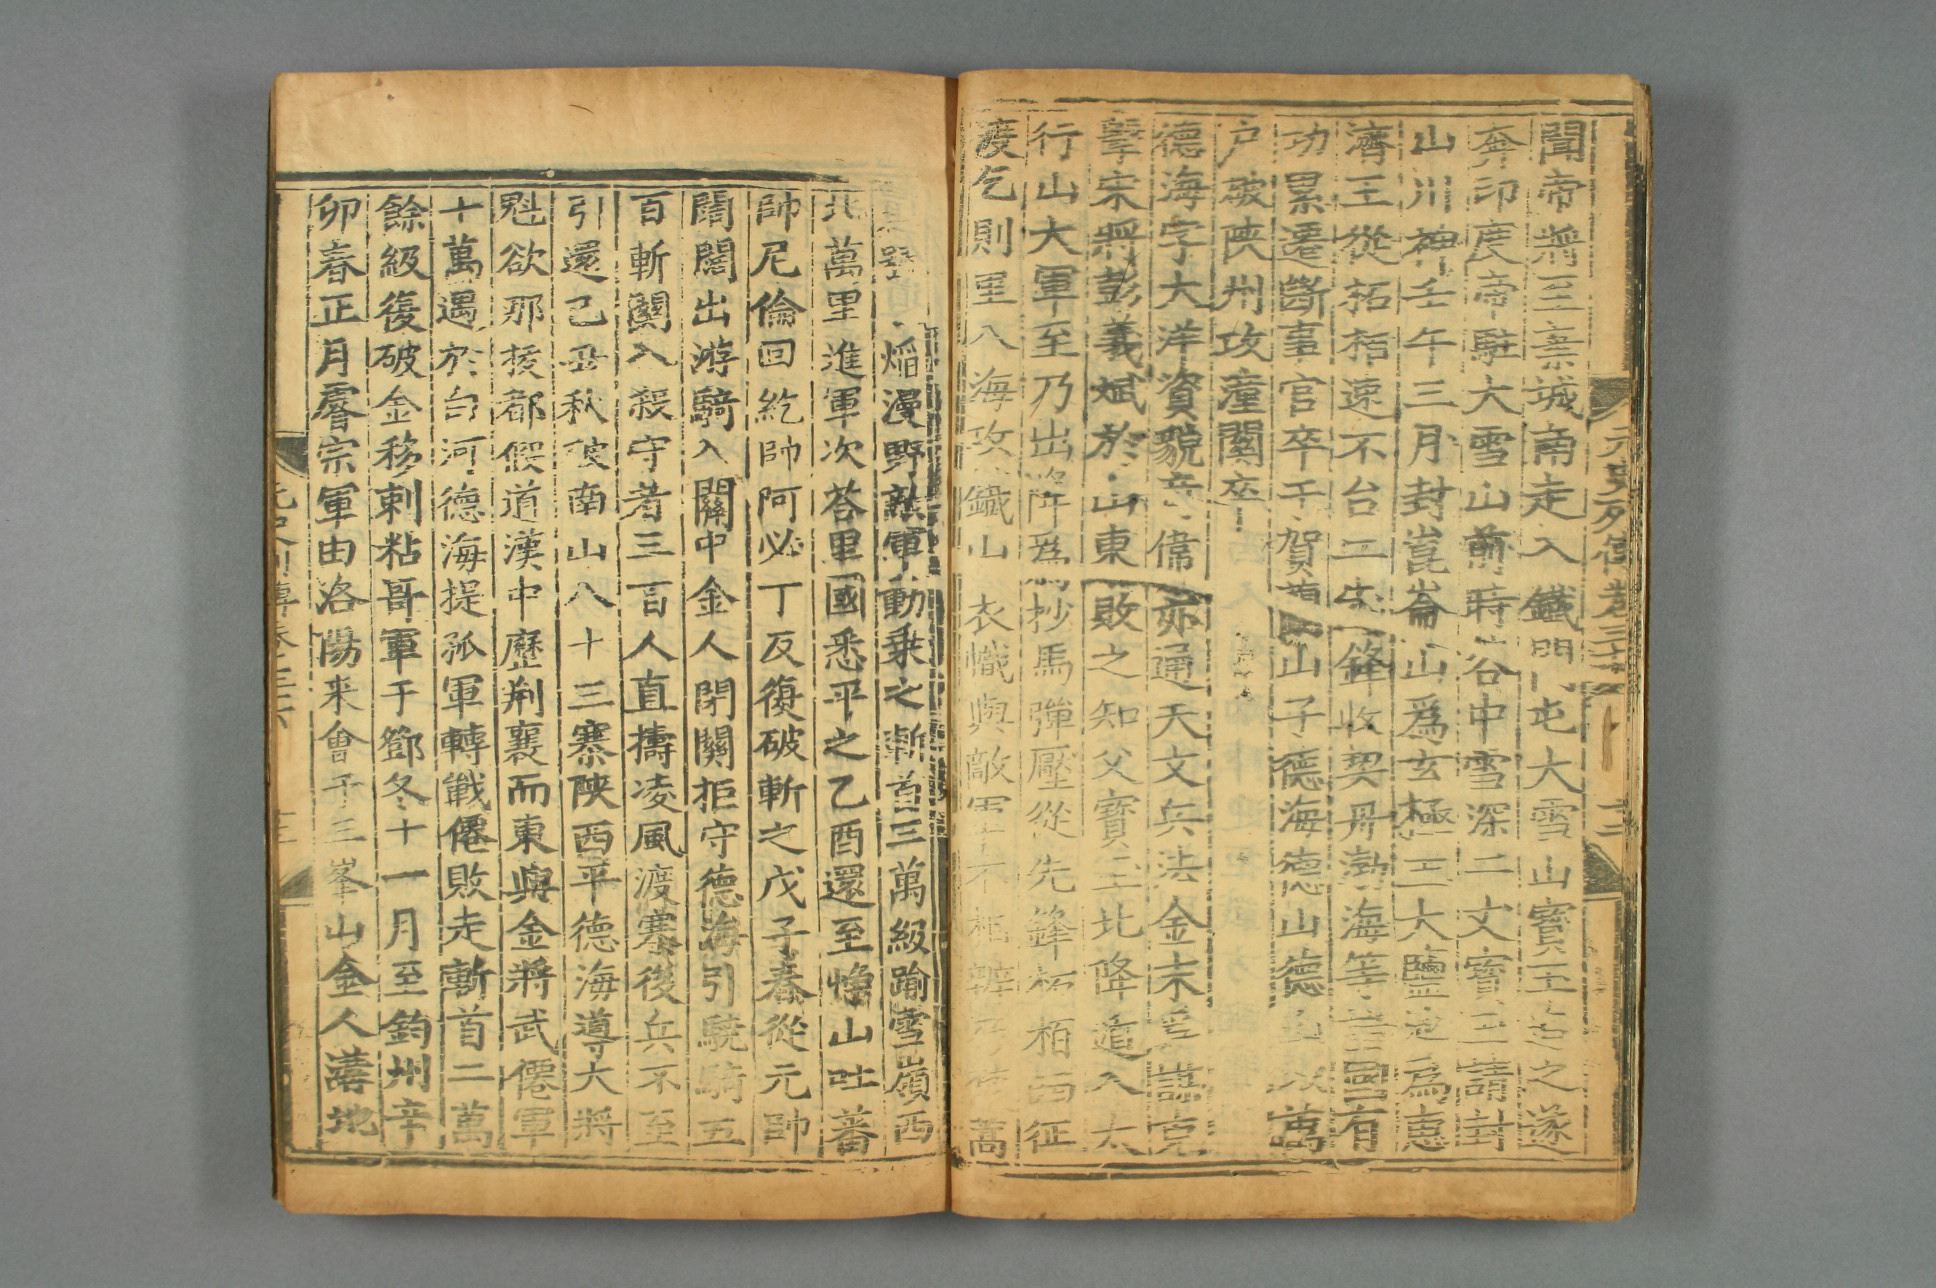 元史列傳卷三十六
聞帝將至棄城南走入鐵門屯大雪山寶玉追之遂
奔印度帝駐大雪山前時谷中雪深二丈寶玉請封
山川神壬午三月封崑崙山爲玄極王大鹽池爲惠
濟王從柘柏速不台二先鋒收契丹渤海等諸國有
功累遷斷事官卒于賀蘭山子德海德山德山以萬
户破陝州攻潼關卒
德海字大洋資貌奇偉亦通天文兵法金末爲謀克
擊宋將彭義斌於山東敗之知父寶玉北降遁入太
行山大軍至乃出降爲抄馬彈壓從先鋒柘柏西征
渡乞則里八海攻鐵山衣幟與敵軍不相辨乃焚蒿
焰漫野敵軍動乘之斬首三萬級踰雪嶺西
北萬里進軍次荅里國悉平之乙酉還至崢山吐蕃
帥尼倫回紇帥阿必丁反復破斬之戊子春從元帥
闊闊出游騎入關中金人閉關拒守德海引驍騎五
百斬關入殺守者三百人直擣凌風渡寨後兵不至
引還己丑秋破南山八十三寨陝西平德海導大將
魁欲那拔都假道漢中歷荊襄而東與金將武僊軍
十萬遇於白河德海提孤軍轉戰僊敗走斬首二萬
餘級復破金移剌粘哥軍于鄧冬十一月至鈞州辛
卯春正月睿宗軍由洛陽來會于三峯山金人溝地
元史列傳卷三十六